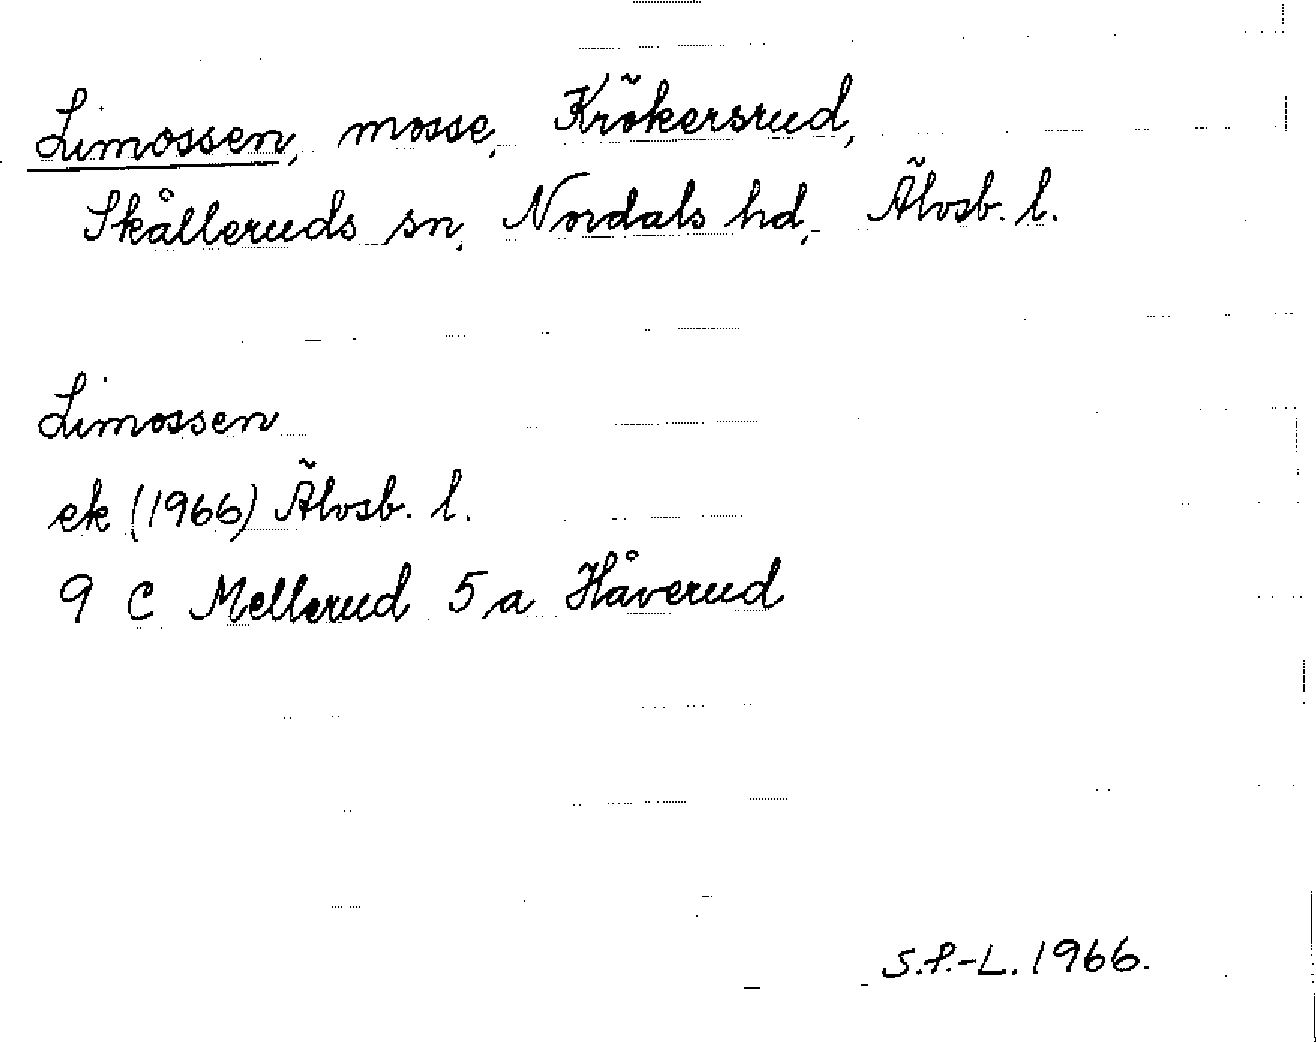 Limossen, mosse, Krökersrud,
Skålleruds sn, Nordals hd, Älvsb. l.
Limossen
ek (1966) Älvsb. l.
9 C Mellerud 5 a Håverud
S.P.-L. 1966.